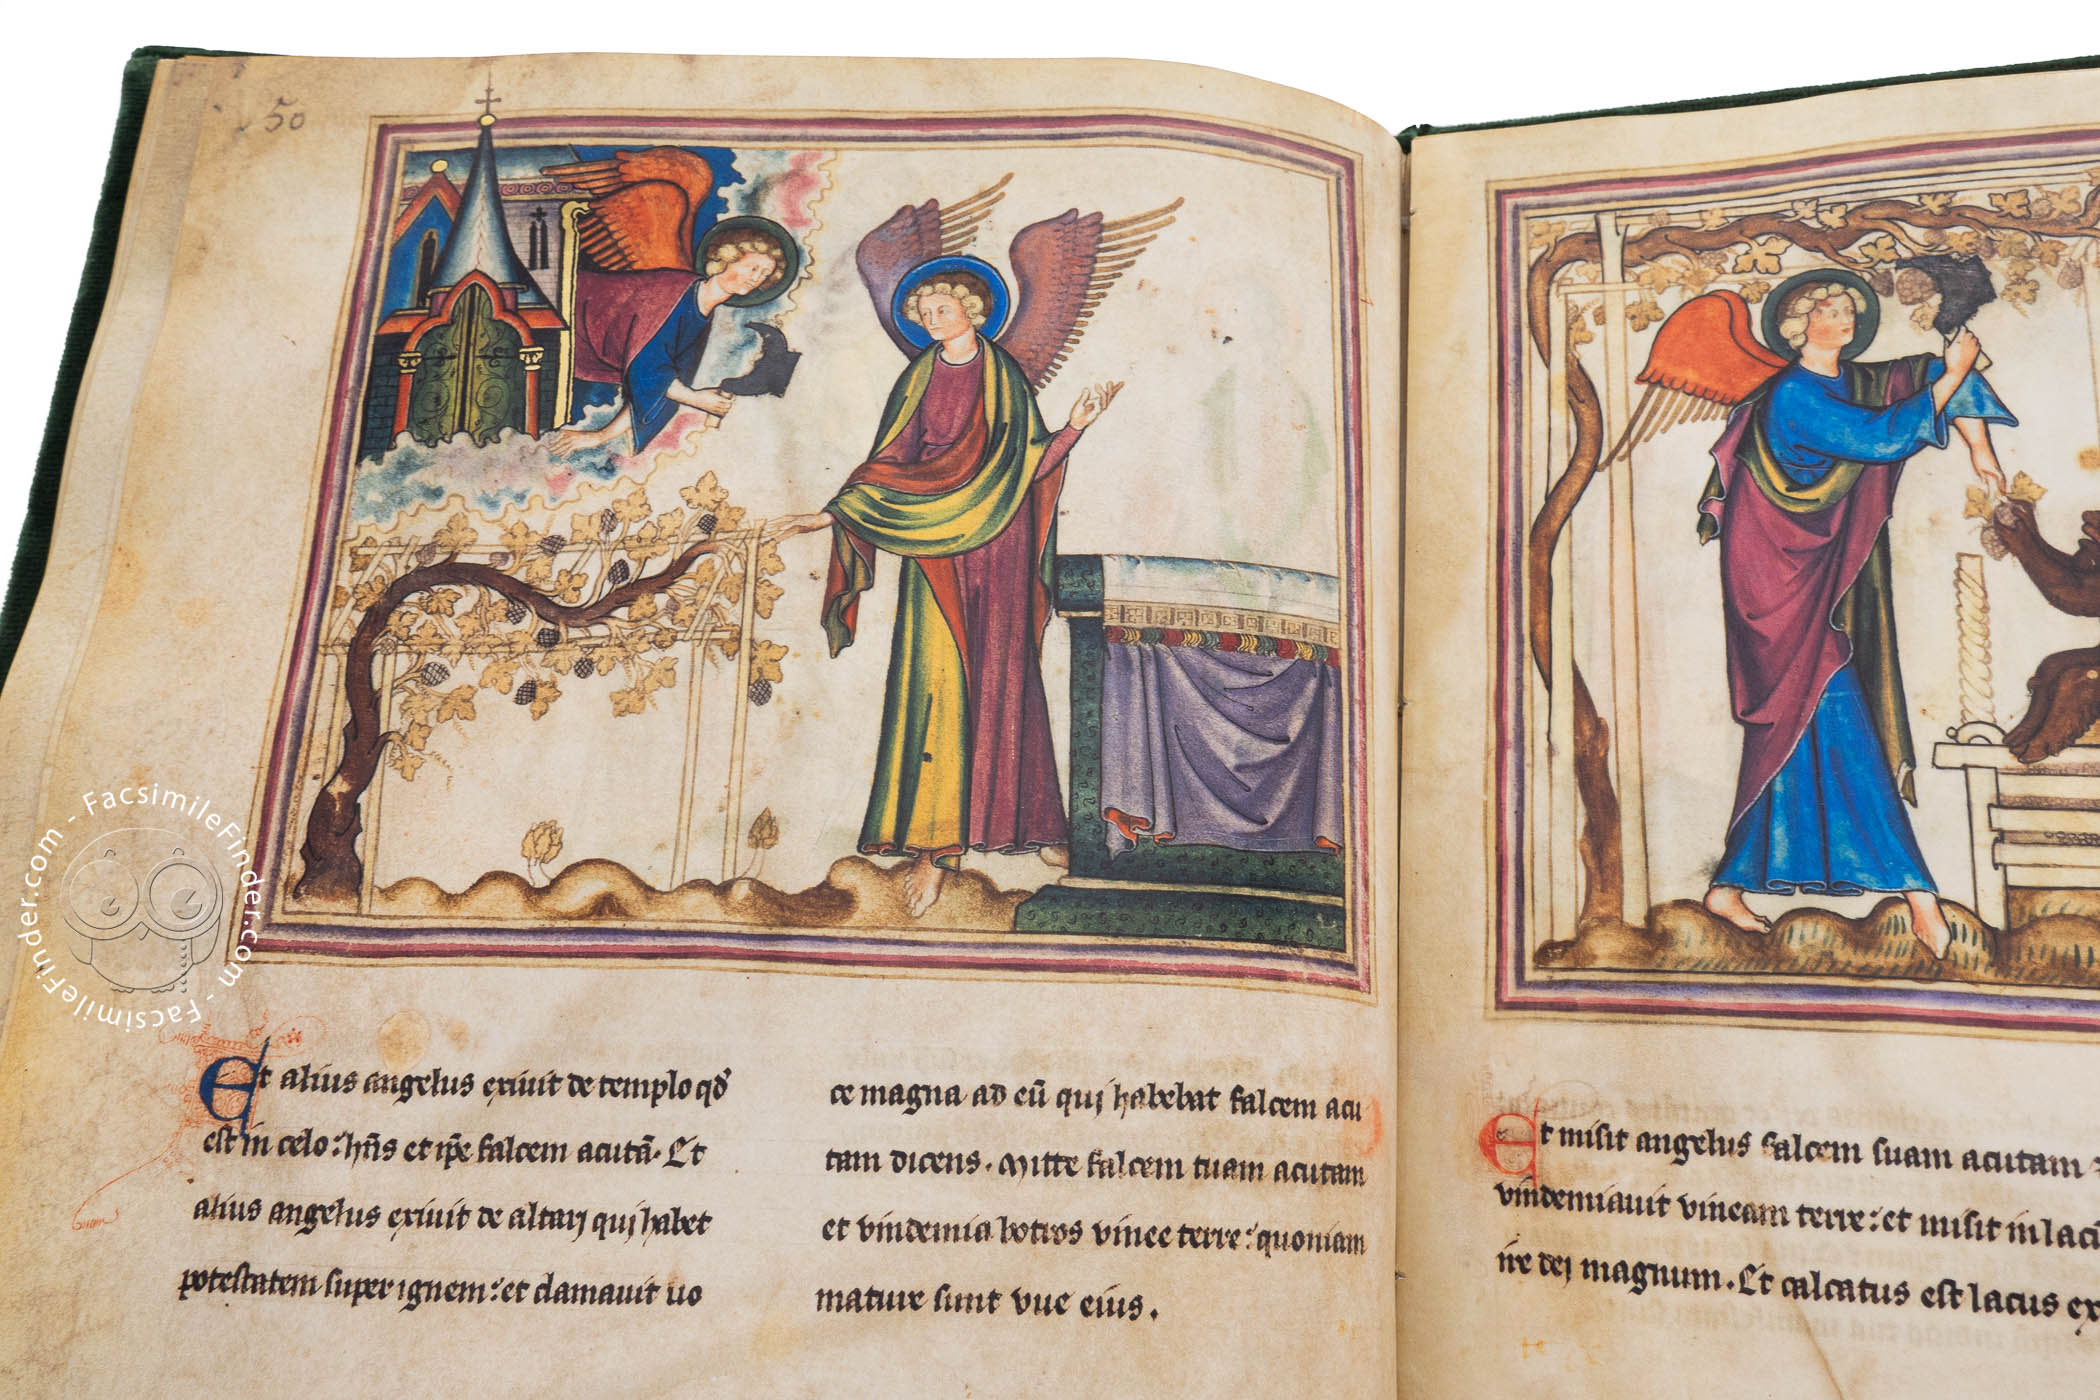 50
Et alius angelus exiuit de templo qd
est in celo: hñs et ip̃e falcem acutã. Et
alius angelus exiuit de altari qui habet
potestatem super ignem: et clamauit uo
ce magna ad eũ qui habebat falcem acu
tam dicens. Mitte falcem tuam acutam
et vindemia botros vinee terre: quoniam
mature sunt vue eius.
Et misit angelus falcem suam acutam
vindemiauit vineam terre: et misit in lacũ
ire dei magnum. Et calcatus est lacus ex
FacsimileFinder.com - FacsimileFinder.com - Facsimile